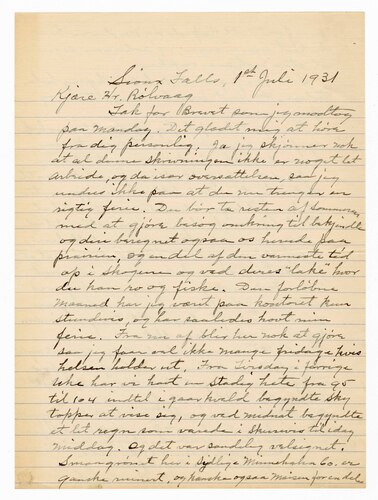 Sioux Falls, 1st Juli 1931
Kjære Hr. Rölvaag
Tak for Brevet som jeg modtog
paa Mandag. Det gladt mig at höre
fra dig personlig. Ja jeg skjönner nok
at al denne skrivningen ikke er noget let
Arbeide, og da især oversættelsen, saa jeg
undres ikke paa at du nu trenger en
rigtig ferie. Du bör ta resten af sommeren
med at gjöre besög omkring til bekjendte
og du er beregnet ogsaa os herude paa
prærien, og en del af den varmeste tid
op i Skogene og ved deres "lake" hvor
du kan ro og fiske. Den forlöbne
Maaned har jeg været paa kontoret kun
stundevis og har saaledes havt min
ferie. Fra nu af blir her nok at gjöre
saa jeg faar vel ikke mange fridage hvis
helsen holder ut. Fra Tirsdag i forrige
Uke har vi havt en Stadig hete fra 95
til 104 indtil i gaar kvald begyndte Sky
topper at vise sig, og ved midnat begyndte
et let regn som varede i skurevis til idag
middag. Og det var sandelig velsignet.
Smaagrönet her i Sydlige Minnehaha Co. er
ganske ruinert, og kanske ogsaa Maisen for en del